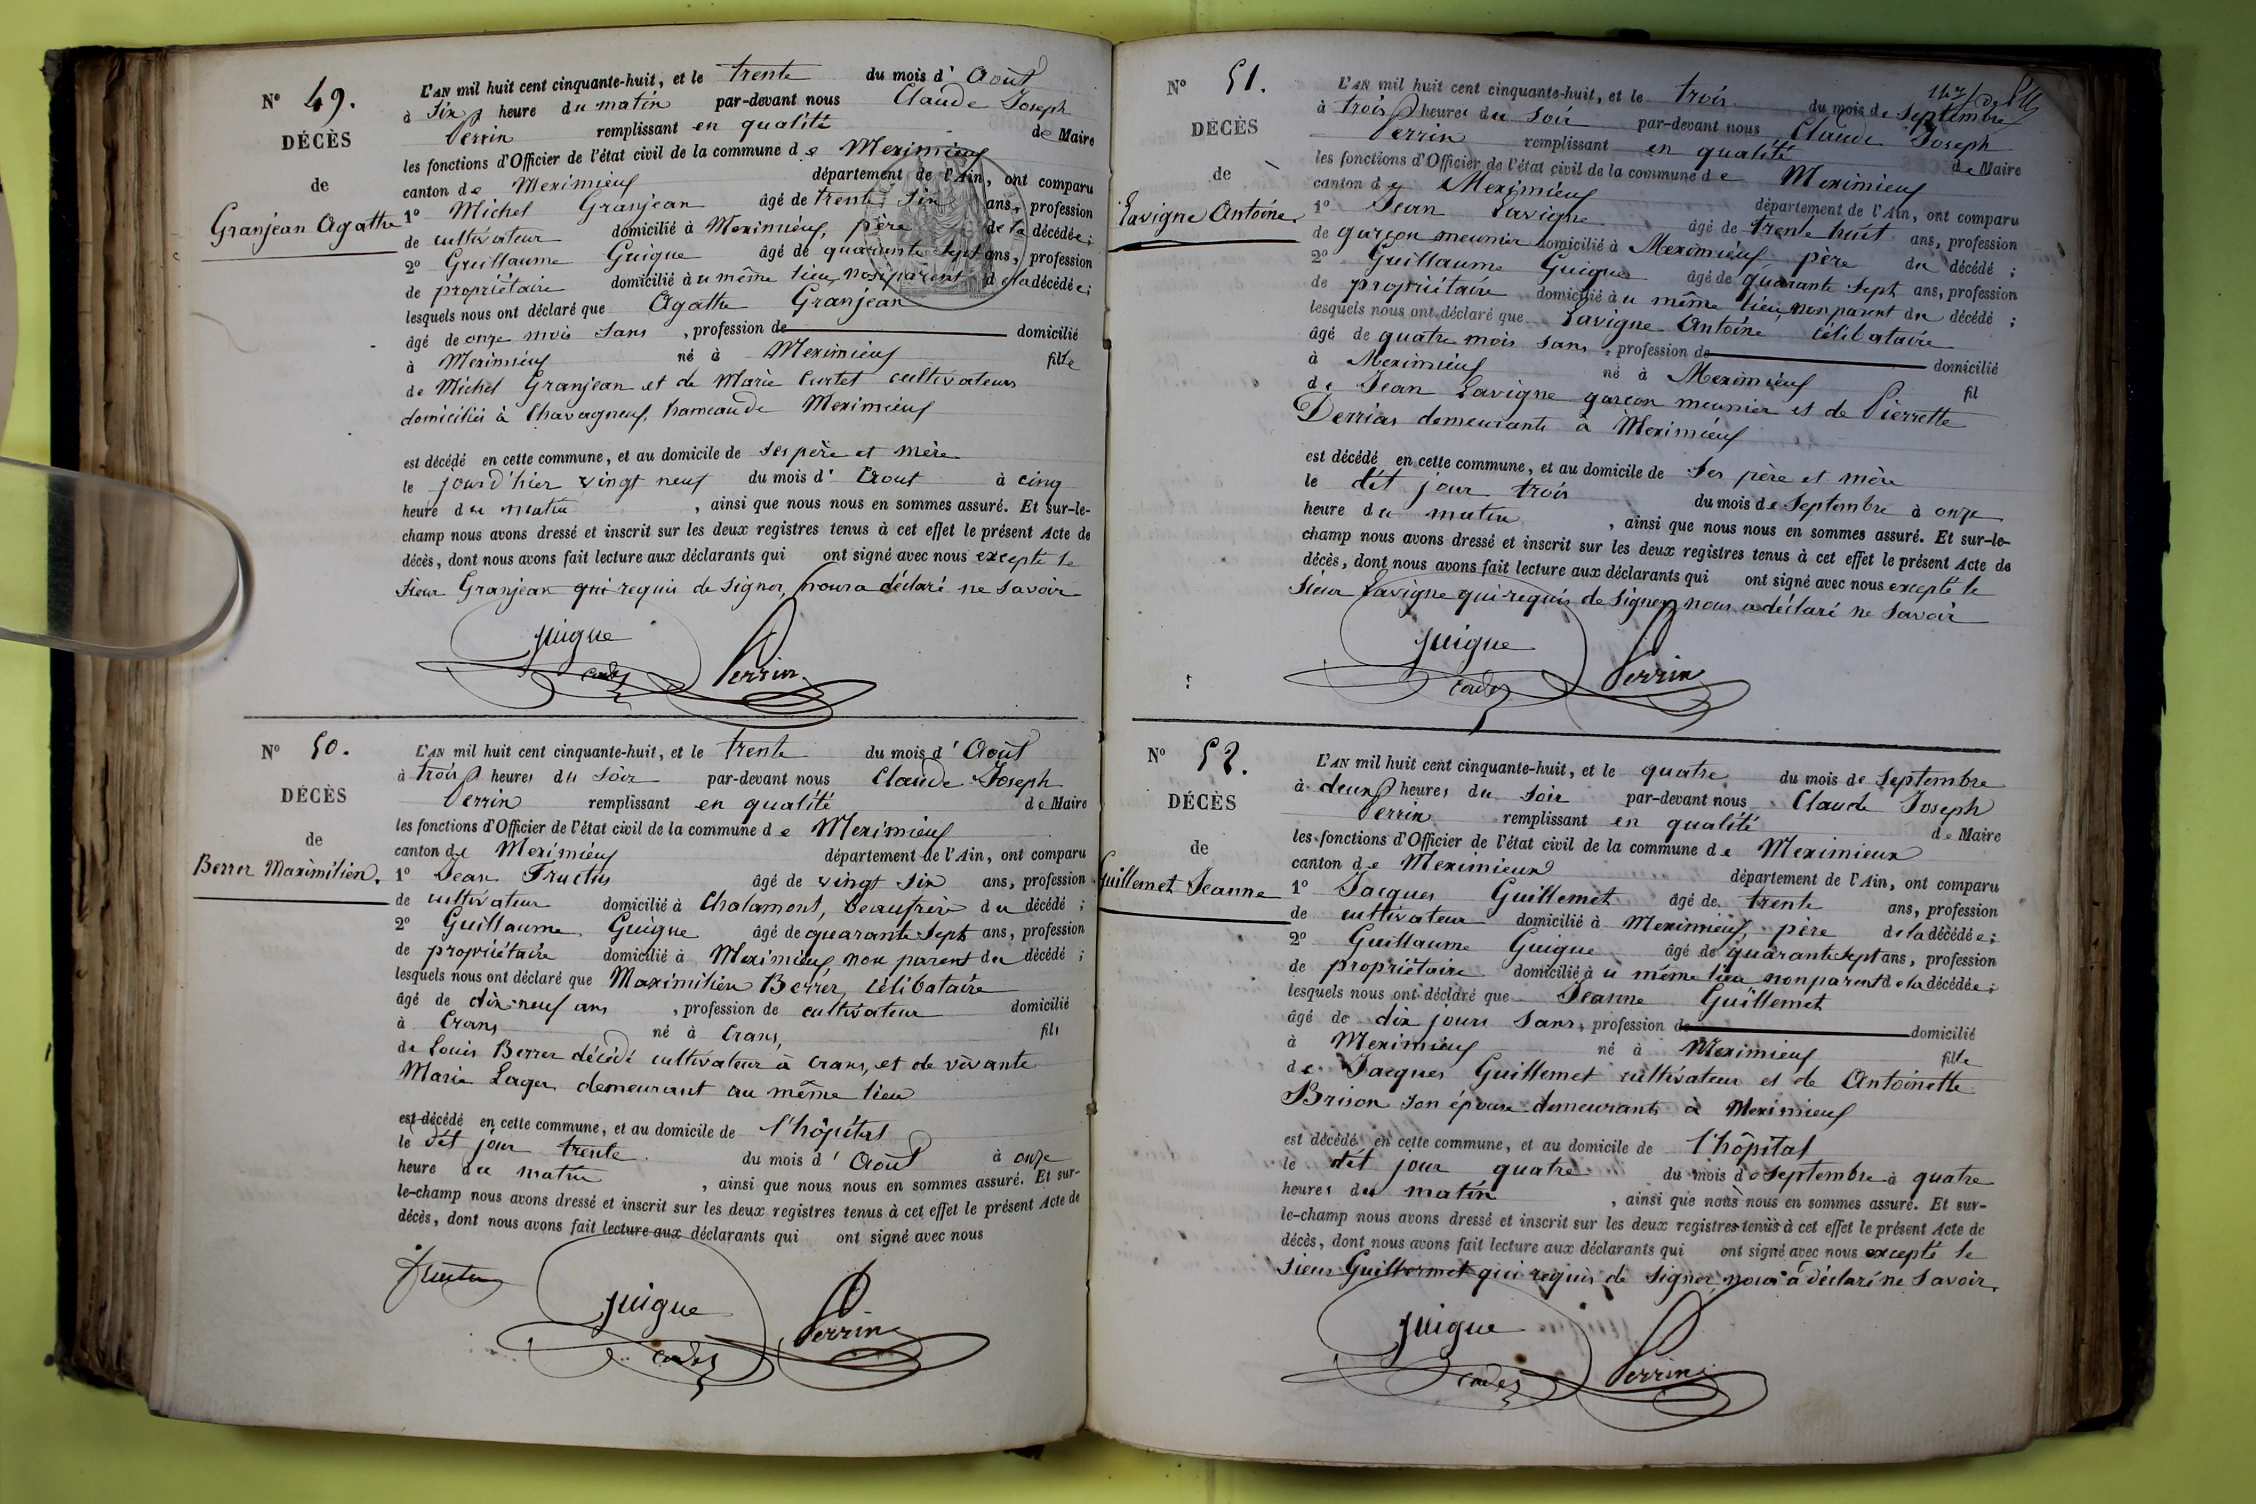 N° 49.
DÉCÈS
de
Granjean Agathe
L'AN mil huit cent cinquante-huit, et le trente du mois d'Août
à six heure du matin par-devant nous Claude Joseph
Perrin remplissant en qualité de Maire
les fonctions d'Officier de l'état civil de la commune de Meximieux
canton de Meximieux département de l'Ain, ont comparu
1° Michel Granjean âgé de trente six ans, profession
de cultivateur domicilié à Meximieux, père de la décédée;
2° Guillaume Guigue âgé de quarante sept ans, profession
de propriétaire domicilié au même lieu, non parent de la décédée;
lesquels nous ont déclaré que Agathe Granjean
âgé de onze mois sans, profession de domicilié
à Meximieux né à Meximieux fille
de Michel Granjean et de Marie Curtet cultivateurs
domiciliés à Chavagneux, hameau de Meximieux
est décédé en cette commune, et au domicile de ses père et mère
le jour d'hier vingt neuf du mois d'Aout à cinq
heure du matin, ainsi que nous nous en sommes assuré. Et sur-le-
champ nous avons dressé et inscrit sur les deux registres tenus à cet effet le présent Acte de
décès, dont nous avons fait lecture aux déclarants qui ont signé avec nous excepté le
sieur Granjean qui requis de signer, nous a déclaré ne savoir
Guigue
Perrin
N° 50.
DÉCÈS
de
Berrer Maximilien.
L'AN mil huit cent cinquante-huit, et le trente du mois d'Août
à trois heures du soir par-devant nous Claude Joseph
Perrin remplissant en qualité de Maire
les fonctions d'Officier de l'état civil de la commune de Meximieux
canton de Meximieux département de l'Ain, ont comparu
1° Jean Fructus âgé de vingt six ans, profession
de cultivateur domicilié à Chalamont, beaufrère du décédé;
2° Guillaume Guigue âgé de quarante sept ans, profession
de propriétaire domicilié à Meximieux non parent du décédé;
lesquels nous ont déclaré que Maximilien Berrer, célibataire
âgé de dix-neuf ans, profession de cultivateur domicilié
à Crans né à Crans, fils
de Louis Berrer décédé cultivateur à Crans, et de vivante
Marie Lager demeurant au même lieu
est décédé en cette commune, et au domicile de l'hôpital
le dit jour trente du mois d'Août à onze
heure du matin, ainsi que nous nous en sommes assuré. Et sur-
le-champ nous avons dressé et inscrit sur les deux registres tenus à cet effet le présent Acte de
décès, dont nous avons fait lecture aux déclarants qui ont signé avec nous
Guigue
Perrin
N° 51.
DÉCÈS
de
Lavigne Antoine.
L'AN mil huit cent cinquante-huit, et le trois du mois de Septembre
à trois heures du soir par-devant nous Claude Joseph
Perrin remplissant en qualité de Maire
les fonctions d'Officier de l'état civil de la commune de Meximieux
canton de Meximieux département de l'Ain, ont comparu
1° Jean Lavigne âgé de trente huit ans, profession
de garçon meunier domicilié à Meximieux père du décédé;
2° Guillaume Guigue âgé de quarante sept ans, profession
de propriétaire domicilié au même lieu, non parent du décédé;
lesquels nous ont déclaré que Lavigne Antoine célibataire
âgé de quatre mois sans, profession de domicilié
à Meximieux né à Meximieux fil
de Jean Lavigne garçon meunier et de Pierrette
Derrias demeurants à Meximieux
est décédé en cette commune, et au domicile de ses père et mère
le dit jour trois du mois de Septembre à onze
heure du matin, ainsi que nous nous en sommes assuré. Et sur-le-
champ nous avons dressé et inscrit sur les deux registres tenus à cet effet le présent Acte de
décès, dont nous avons fait lecture aux déclarants qui ont signé avec nous excepté le
sieur Lavigne qui requis de signer nous a déclaré ne savoir
Guigue
Perrin
N° 52.
DÉCÈS
de
Guillemet Jeanne
L'AN mil huit cent cinquante-huit, et le quatre du mois de Septembre
à deux heures du soir par-devant nous Claude Joseph
Perrin remplissant en qualité de Maire
les fonctions d'Officier de l'état civil de la commune de Meximieux
canton de Meximieux département de l'Ain, ont comparu
1° Jacques Guillemet âgé de trente ans, profession
de cultivateur domicilié à Meximieux, père de la décédée;
2° Guillaume Guigue âgé de quarante sept ans, profession
de propriétaire domicilié au même lieu non parent de la décédée;
lesquels nous ont déclaré que Jeanne Guillemet
âgé de dix jours sans, profession de domicilié
à Meximieux né à Meximieux fille
de Jacques Guillemet cultivateur et de Antoinette
Brison son épouse demeurants à Meximieux
est décédé en cette commune, et au domicile de l'hôpital
le dit jour quatre du mois de Septembre à quatre
heures du matin, ainsi que nous nous en sommes assuré. Et sur-
le-champ nous avons dressé et inscrit sur les deux registres tenus à cet effet le présent Acte de
décès, dont nous avons fait lecture aux déclarants qui ont signé avec nous excepté le
sieur Guillermet qui requis de signer, nous a déclaré ne savoir.
Guigue
Perrin